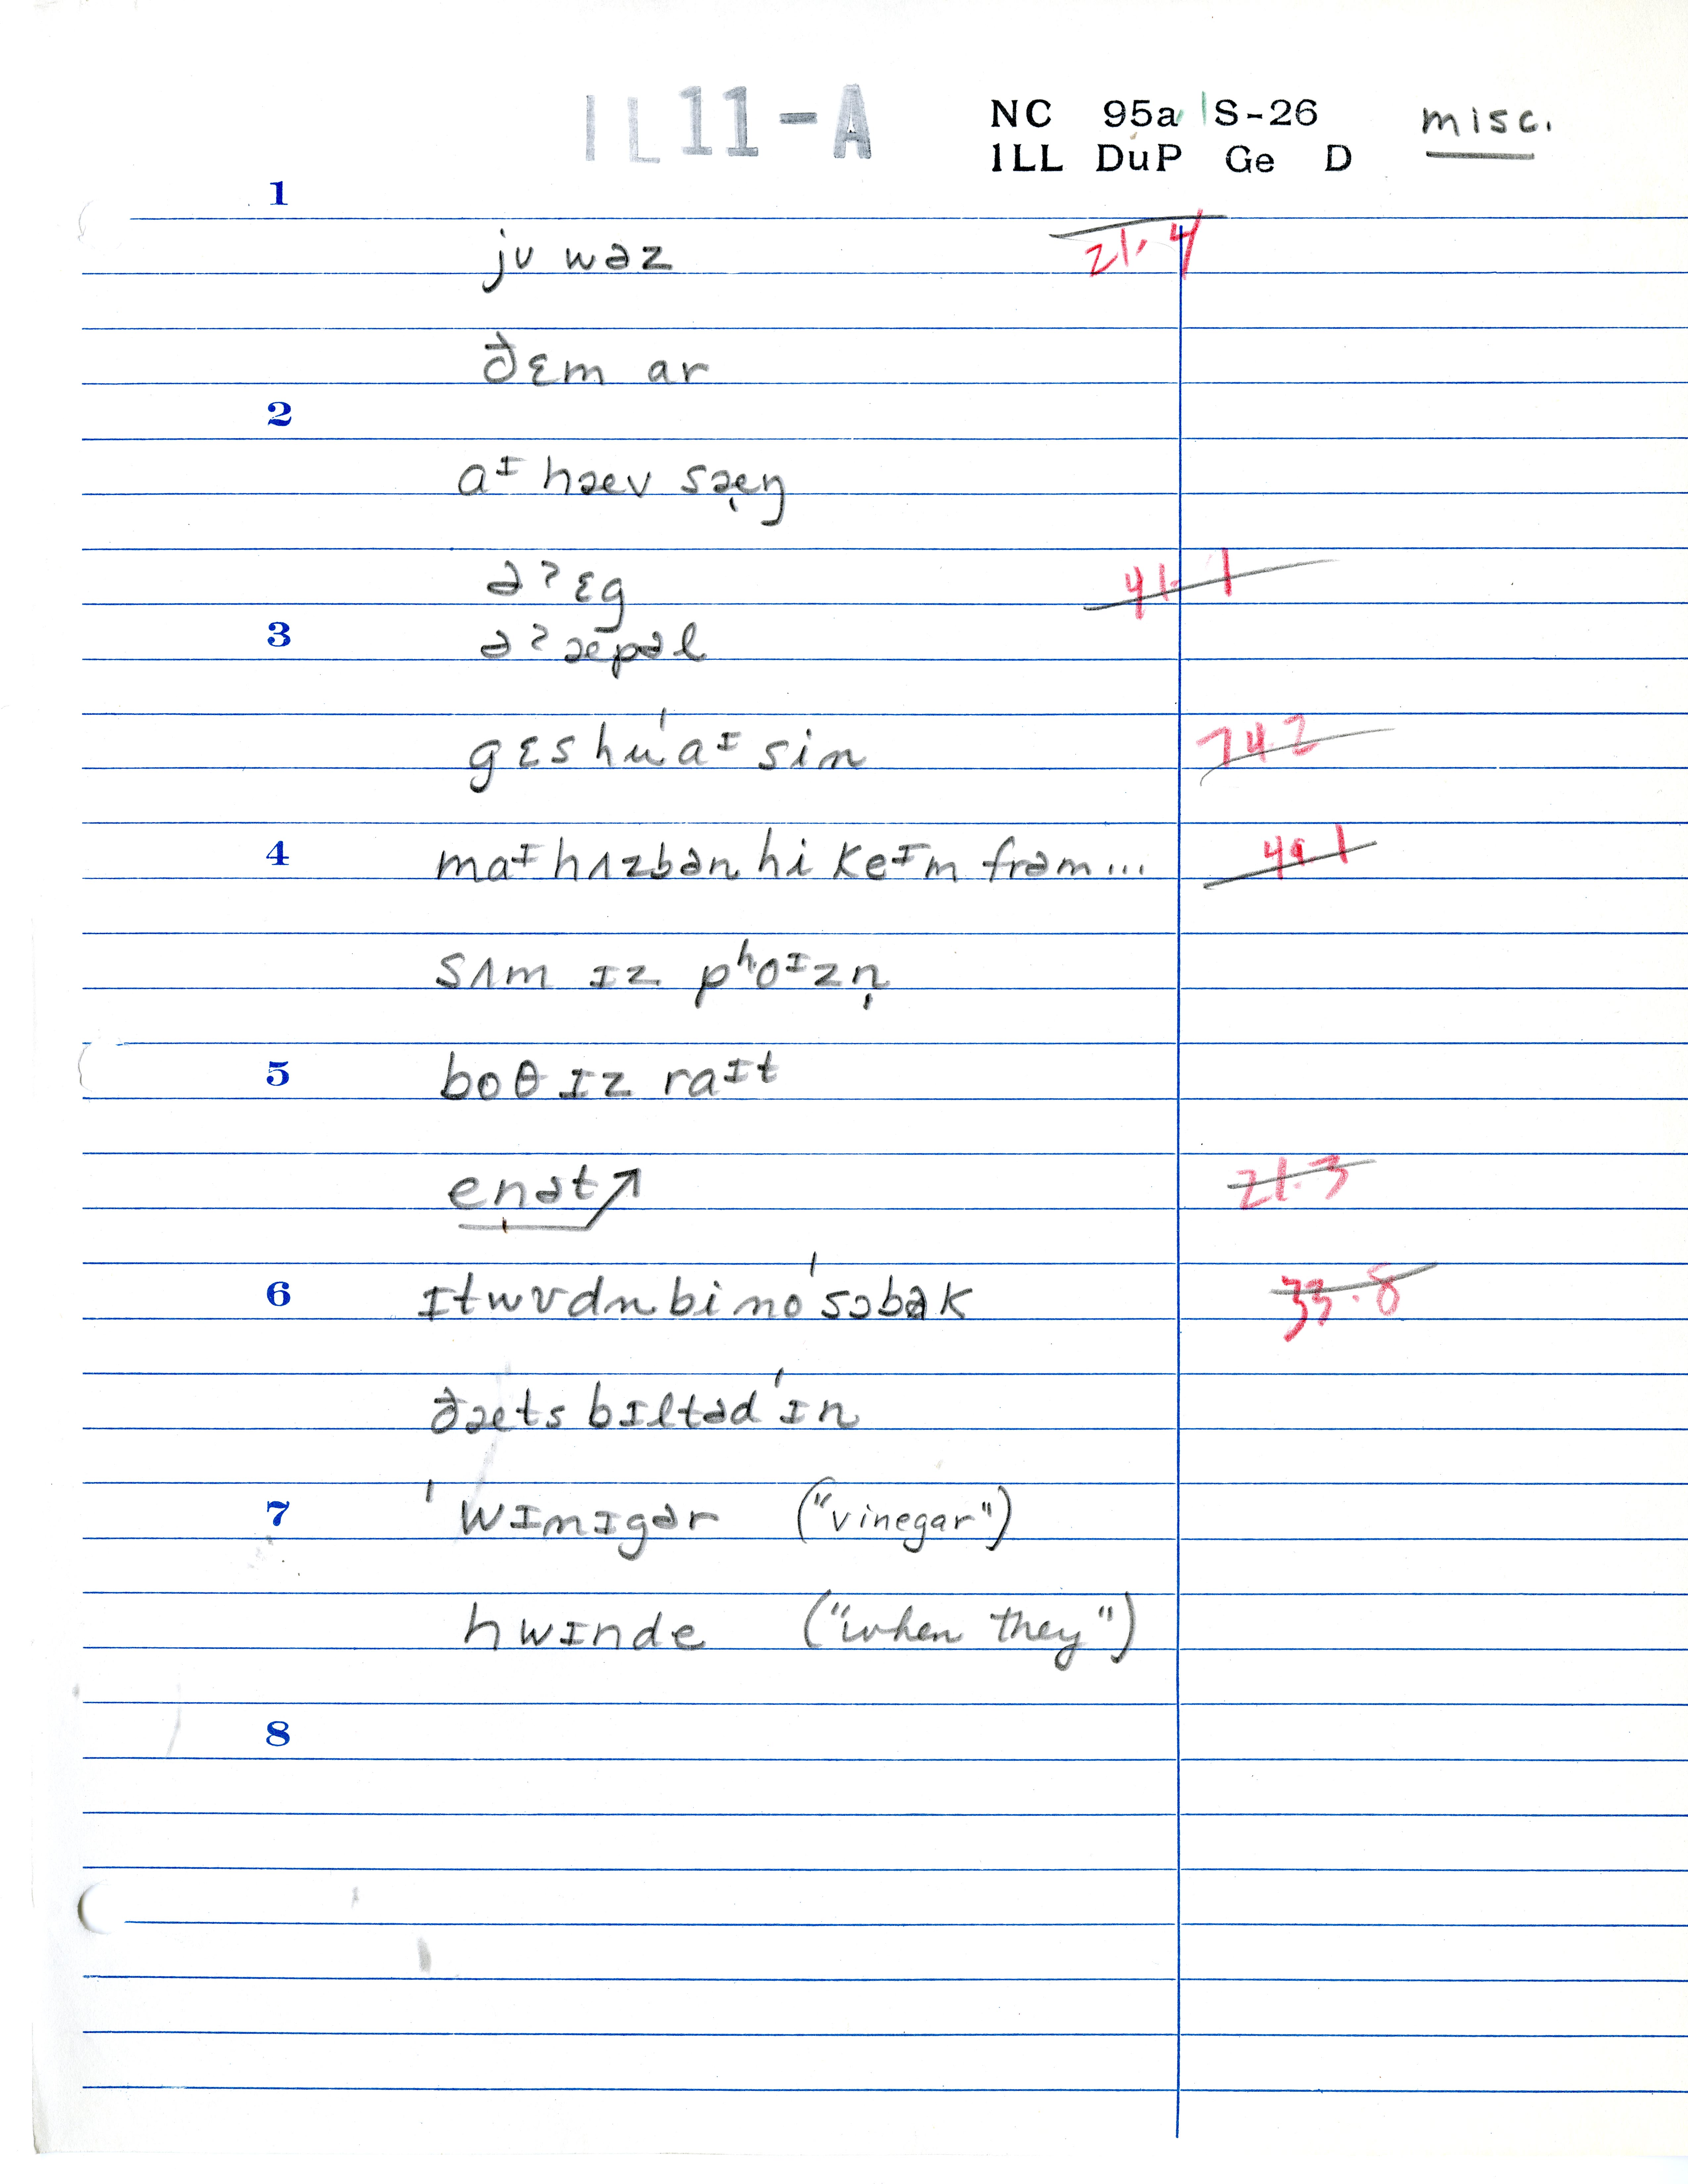 IL11-A NC 95a S-26 misc.
ILL DuP Ge D
1
jʊ wəz 21.4
ðɛm ar
2
aᶦ hæv sæ̩ŋ
ə ʔ ɛg 41.1
3 ə ʔ æpəl
gɛs hu ˈaᶦ sin 74.2
4 maᶦ hʌzbən hi keᶦm frəm...
sʌm ɪz pʰoᶦzn̩
5 boθ ɪz raᶦt
enət↗ 21.3
6 ɪtwʊdnbinoˈsɔbək 33.8
ðætsbɪltədˈɪn
7 ˈwɪnɪgər ("vinegar")
hwɪnde ("when they")
8